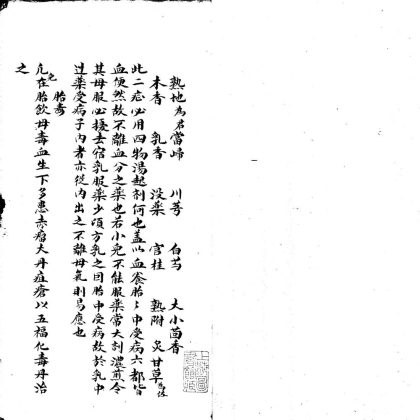 熟地為君 當歸 川芎 白芍 大小茴香
木香 乳香 没藥 官桂 熟附 炙甘草為佐
此二症必用四物湯起剂何也盖以血食胎〻中受病六都皆
血便然故不離血分之藥也若小兒不能服藥常大剂濃煎令
其母服必擠去宿乳服藥少頃方乳之因胎中受病故於乳中
过藥受病于内者亦從内出之不離母氣則易應也
胎毒
凡兒在胎飲母毒血生下多患赤瘤火丹疽瘡以五福化毒丹治
之